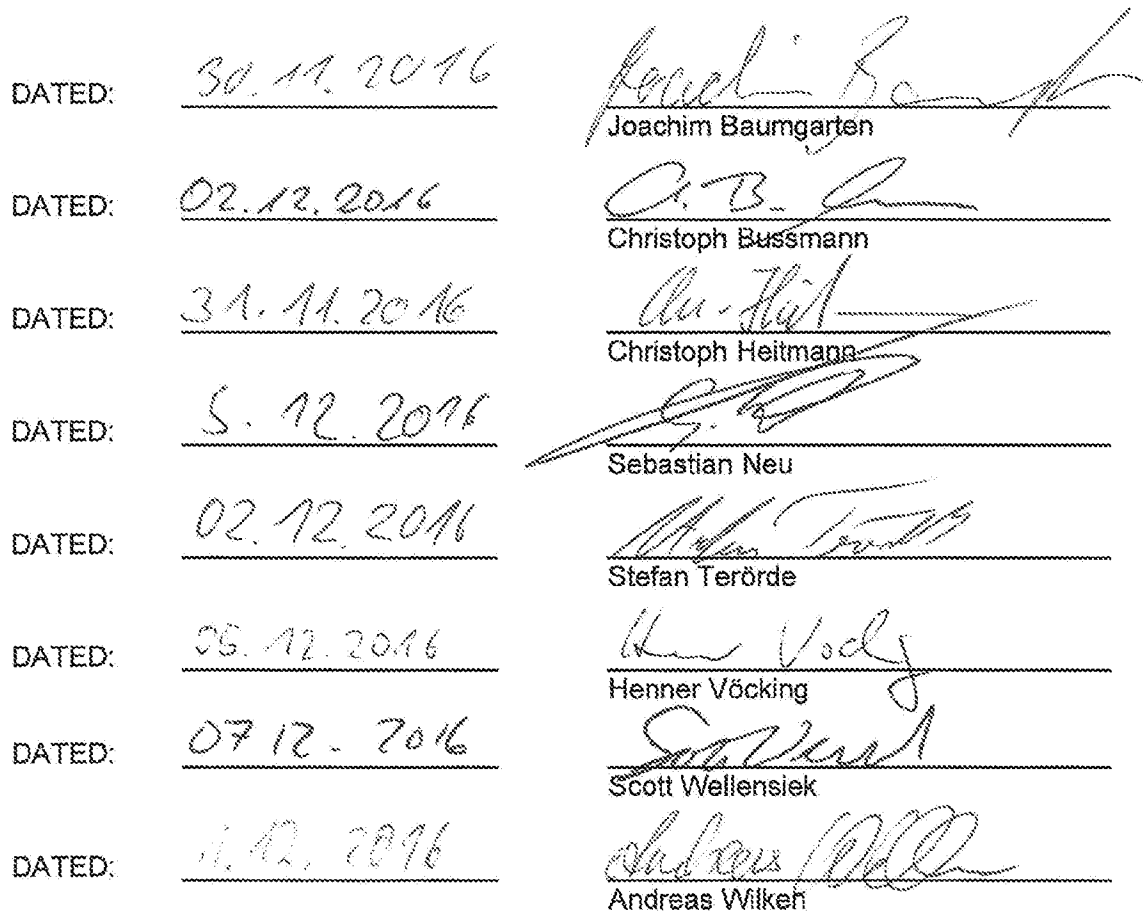 DATED: 30.11.2016
Joachim Baumgarten
DATED: 02.12.2016
Christoph Bussmann
DATED: 31.11.2016
Christoph Heitmann
DATED: 5.12.2016
Sebastian Neu
DATED: 02.12.2016
Stefan Terörde
DATED: 05.12.2016
Henner Vöcking
DATED: 07 12 - 2016
Scott Wellensiek
DATED: 12.2016
Andreas Wilken